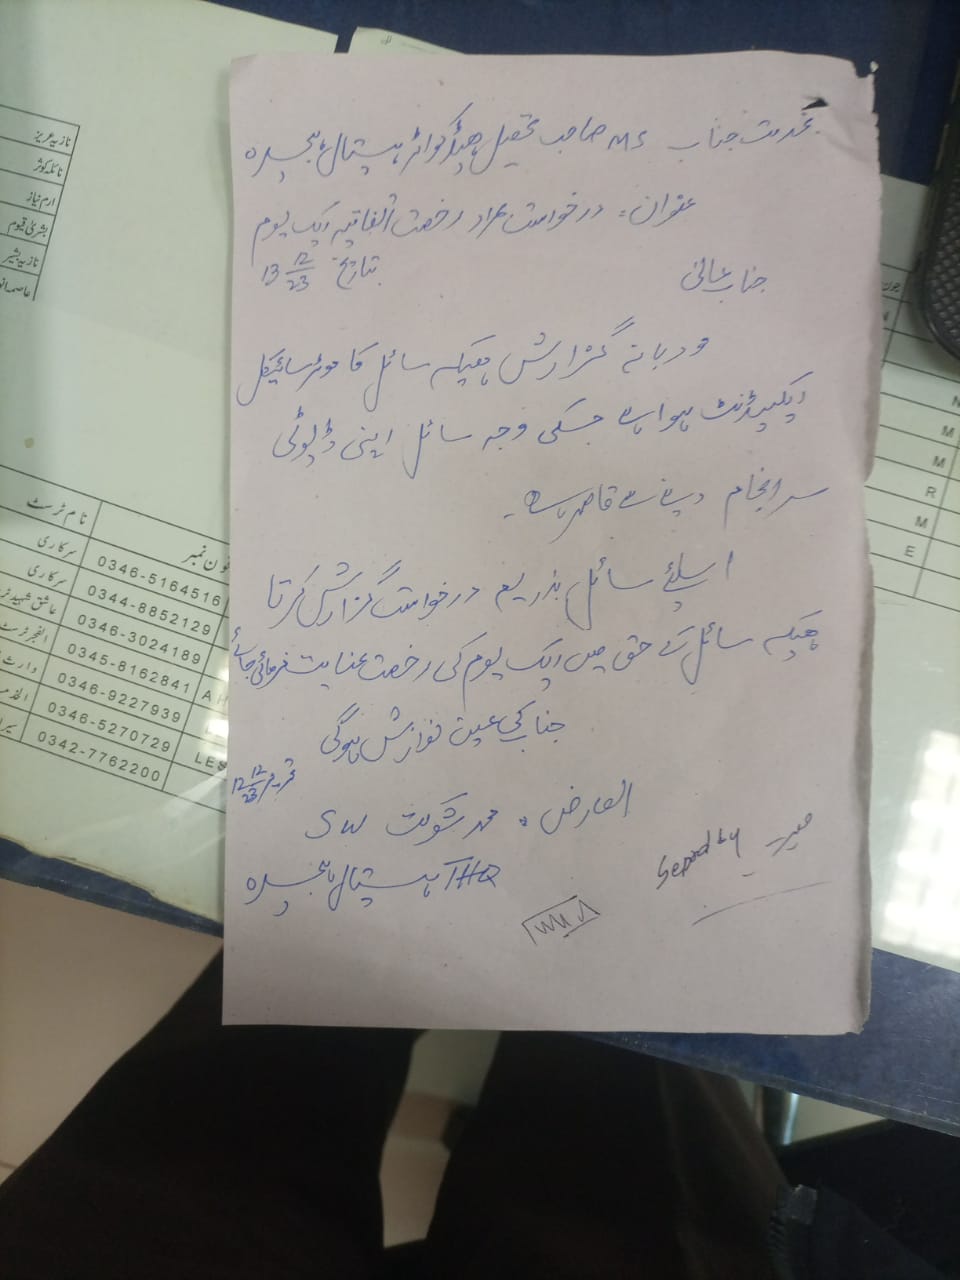 بخدمت جناب MS صاحب تحصیل ہیڈکوارٹر ہسپتال ہجیرہ
عنوان: درخواست مراد رخصت اتفاقیہ ایک یوم
بتاریخ 13 12/23
جناب عالی
مودبانہ گزارش ہیکہ سائل کا موٹر سائیکل
ایکسیڈنٹ ہوا ہے جسکی وجہ سائل اپنی ڈیوٹی
سر انجام دینے سے قاصر ہے۔
اسلئے سائل بذریعہ درخواست گزارش کرتا
ہیکہ سائل کے حق میں ایک یوم کی رخصت عنایت فرمائی جائے
جناب کی عین نوازش ہوگی
تحریر 12 12/23
العارض: محمد شوکت SW
THQ ہسپتال ہجیرہ
نازیہ عزیز
نائلہ کوثر
ارم نیاز
بشریٰ قیوم
نازیہ بشیر
نام ٹرسٹ
فون نمبر
سرکاری 0346-5164516
سرکاری 0344-8852129
عاشق شہید 0346-3024189
الفجر ٹرسٹ 0345-8162841 A
0346-9227939
0346-5270729 LES
0342-7762200
جون
M
M
R
M
E